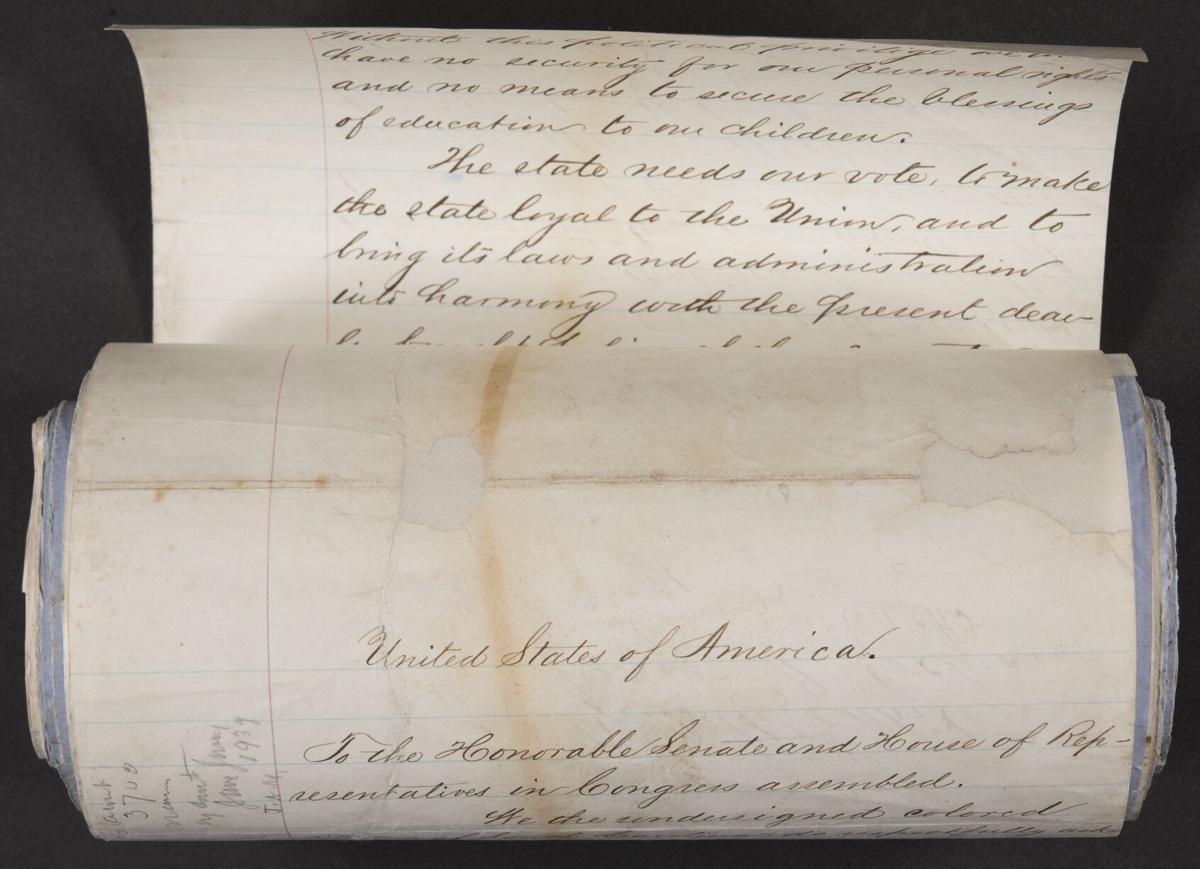 Without this political privilege
have no security for our personal rights
and no means to secure the blessings
of education to our children.
The state needs our vote, to make
the state loyal to the Union, and to
bring its laws and administration
into harmony with the present dear-
United States of America.
To the Honorable Senate and House of Rep-
resentatives in Congress assembled.
We the undersigned colored
respectfully
3700
1939